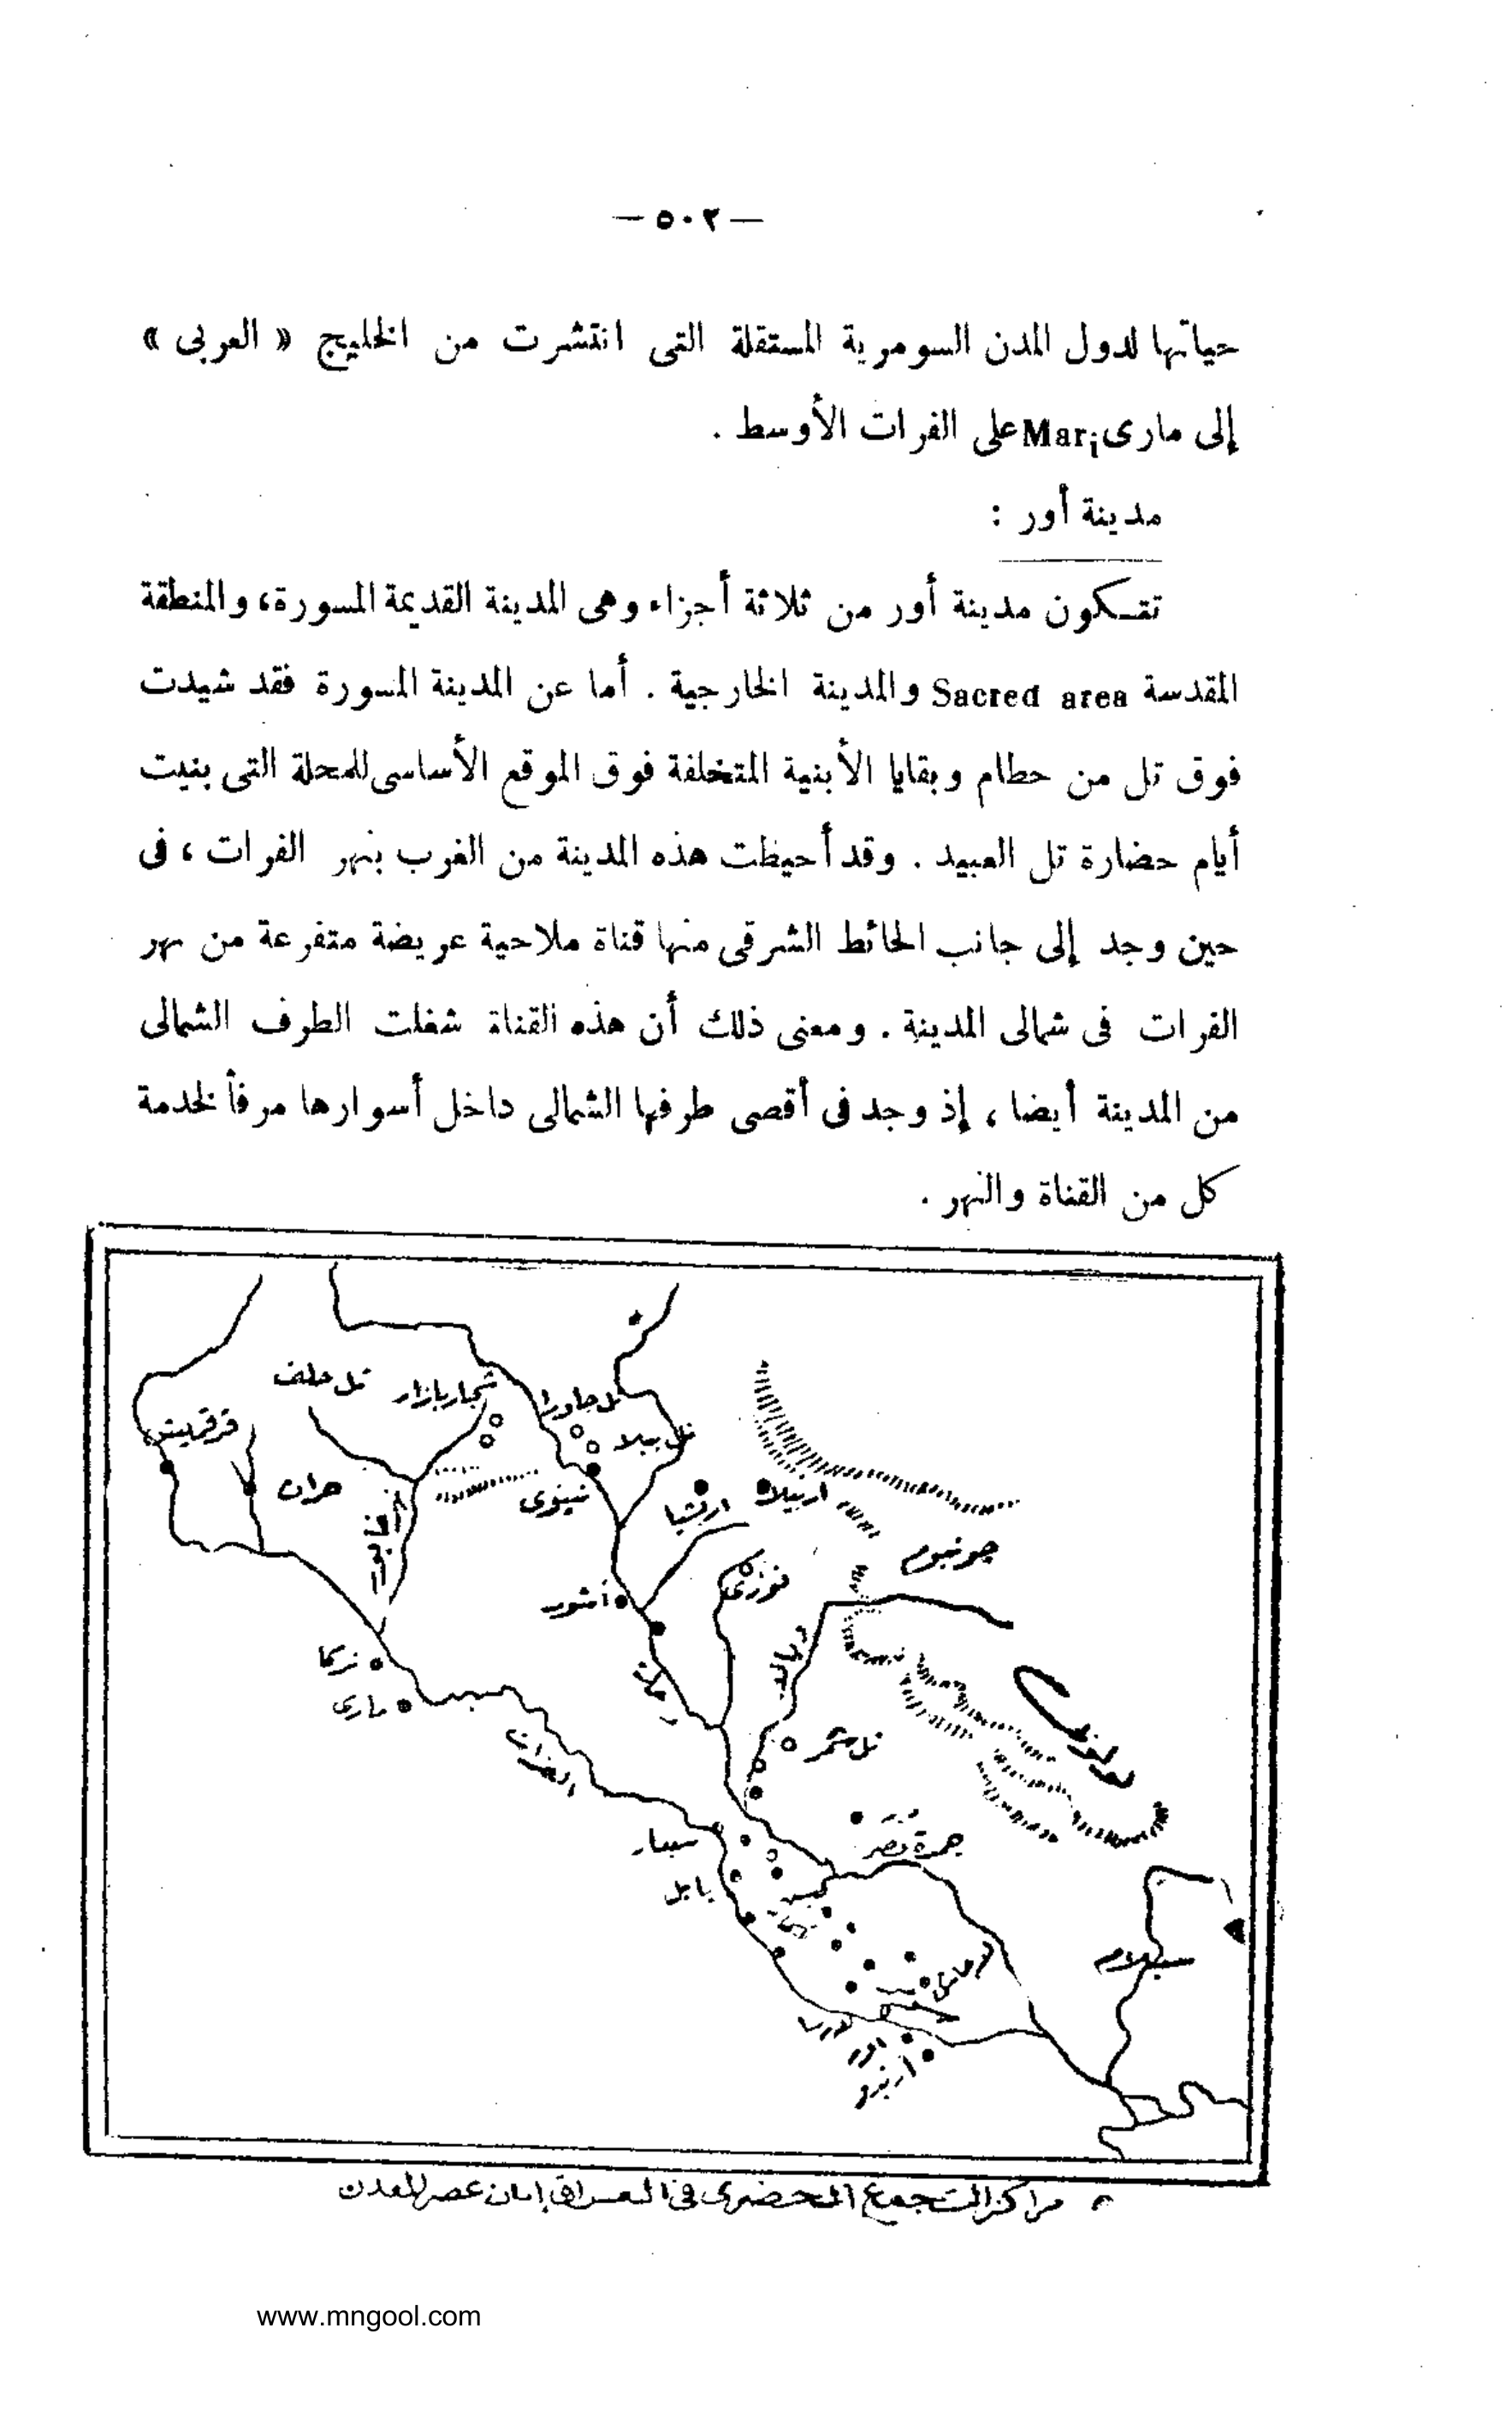 — ٥٠٢ —
حياتها لدول المدن السومرية المستقلة التى انتشرت من الخليج « العربى »
إلى مارى Mari على الفرات الأوسط .
مدينة أور :
تتـكون مدينة أور من ثلاثة أجزاء وهى المدينة القديمة المسورة، والمنطقة
المقدسة Sacred area والمدينة الخارجية . أما عن المدينة المسورة فقد شيدت
فوق تل من حطام وبقايا الأبنية المتخلفة فوق الموقع الأساسى للمحلة التى بنيت
أيام حضارة تل العبيد . وقد أحيظت هذه المدينة من الغرب بنهر الفرات ، فى
حين وجد إلى جانب الحائط الشرقى منها قناة ملاحية عريضة متفرعة من نهر
الفرات فى شمالى المدينة . ومعنى ذلك أن هذه القناة شغلت الطرف الشمالى
من المدينة أيضا ، إذ وجد فى أقصى طرفها الشمالى داخل أسوارها مرفأ لخدمة
كل من القناة والنهر .
تل حلف
شجاربازار
تل جاورا
قرقميش
تل بيلا
حران
الخابور
نينوى
اربيلا
أشور
نوزى
ديالى
دجلة
تركا
مارى
الفرات
تل سمر
جمدة نصر
سيبار
بابل
كيش
عيلام
لارسا
اور
اريدو
مراكز التجمع الحضرى فى العراق إبان عصر المعدن
www.mngool.com